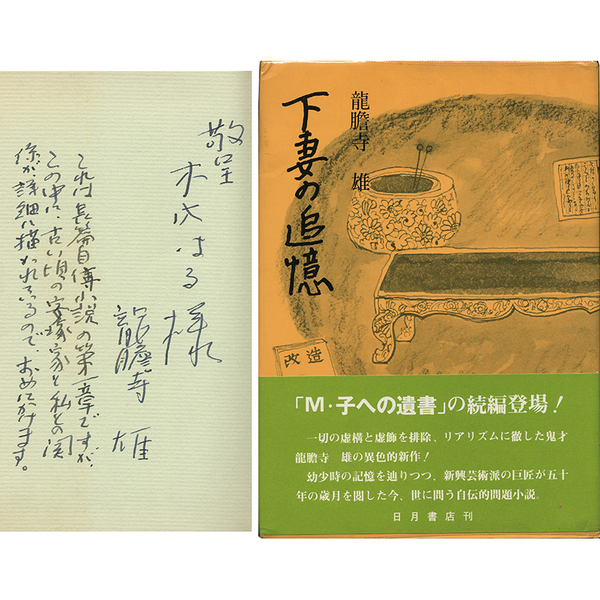 敬呈
木代はる様
龍膽寺 雄
これは長篇自傳小説の第一章ですが、
この中に、古い頃の安塚家と私との関
係が詳細に描かれているので、おめにかけます。
龍膽寺 雄
下妻の追憶
改造
「M・子への遺書」の続編登場!
一切の虚構と虚飾を排除、リアリズムに徹した鬼才
龍膽寺 雄の異色的新作!
幼少時の記憶を辿りつつ、新興芸術派の巨匠が五十
年の歳月を閲した今、世に問う自伝的問題小説。
日月書店刊